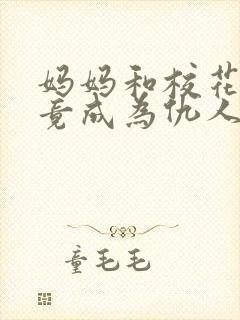 妈妈和校花
竟成为仇人
童毛毛